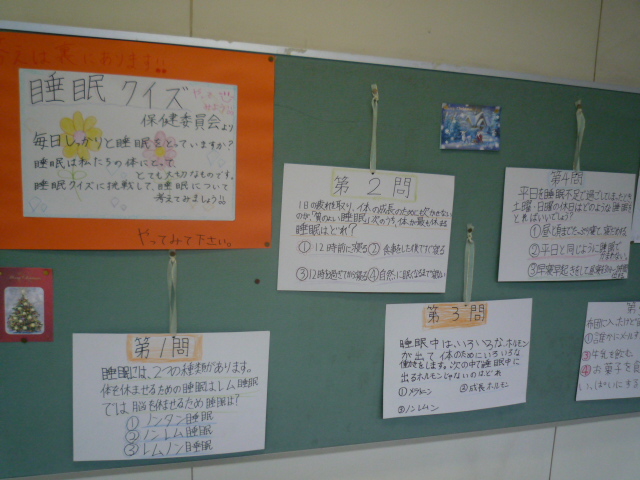 答えは裏にあります!!
睡眠クイズ
やってみよう
保健委員会より
毎日しっかりと睡眠をとっていますか?
睡眠は私たちの体にとって、
とても大切なものです。
睡眠クイズに挑戦して、睡眠について
考えてみましょう!!
やってみて下さい。
第1問
睡眠には、2つの種類があります。
体を休ませるための睡眠はレム睡眠
では脳を休ませるための睡眠は?
①ノンタン睡眠
②ノンレム睡眠
③レムノン睡眠
第2問
1日の疲れを取り、体の成長のためにも欠かせない
のが「質のよい睡眠」次のうち、体が最も休まる
睡眠はどれ?
①12時前に寝る②
③12時を過ぎてから寝る④自然に眠くなるまで寝ない
第3問
睡眠中は、いろいろなホルモン
が出て体のためにいろいろな
働きをします。次の中で睡眠中に
出るホルモンじゃないのはどれ
①メラトニン ②成長ホルモン
③ノンレムン
第4問
平日を睡眠不足で過ごしてしまったら
土曜・日曜の休日はどのような睡眠を
とればいいでしょう?
①昼と夜までたっぷり寝て、寝だめする
②平日と同じように睡眠を
③早寝早起きをして
①誰かにメールする
③牛乳を飲む
④お菓子を食